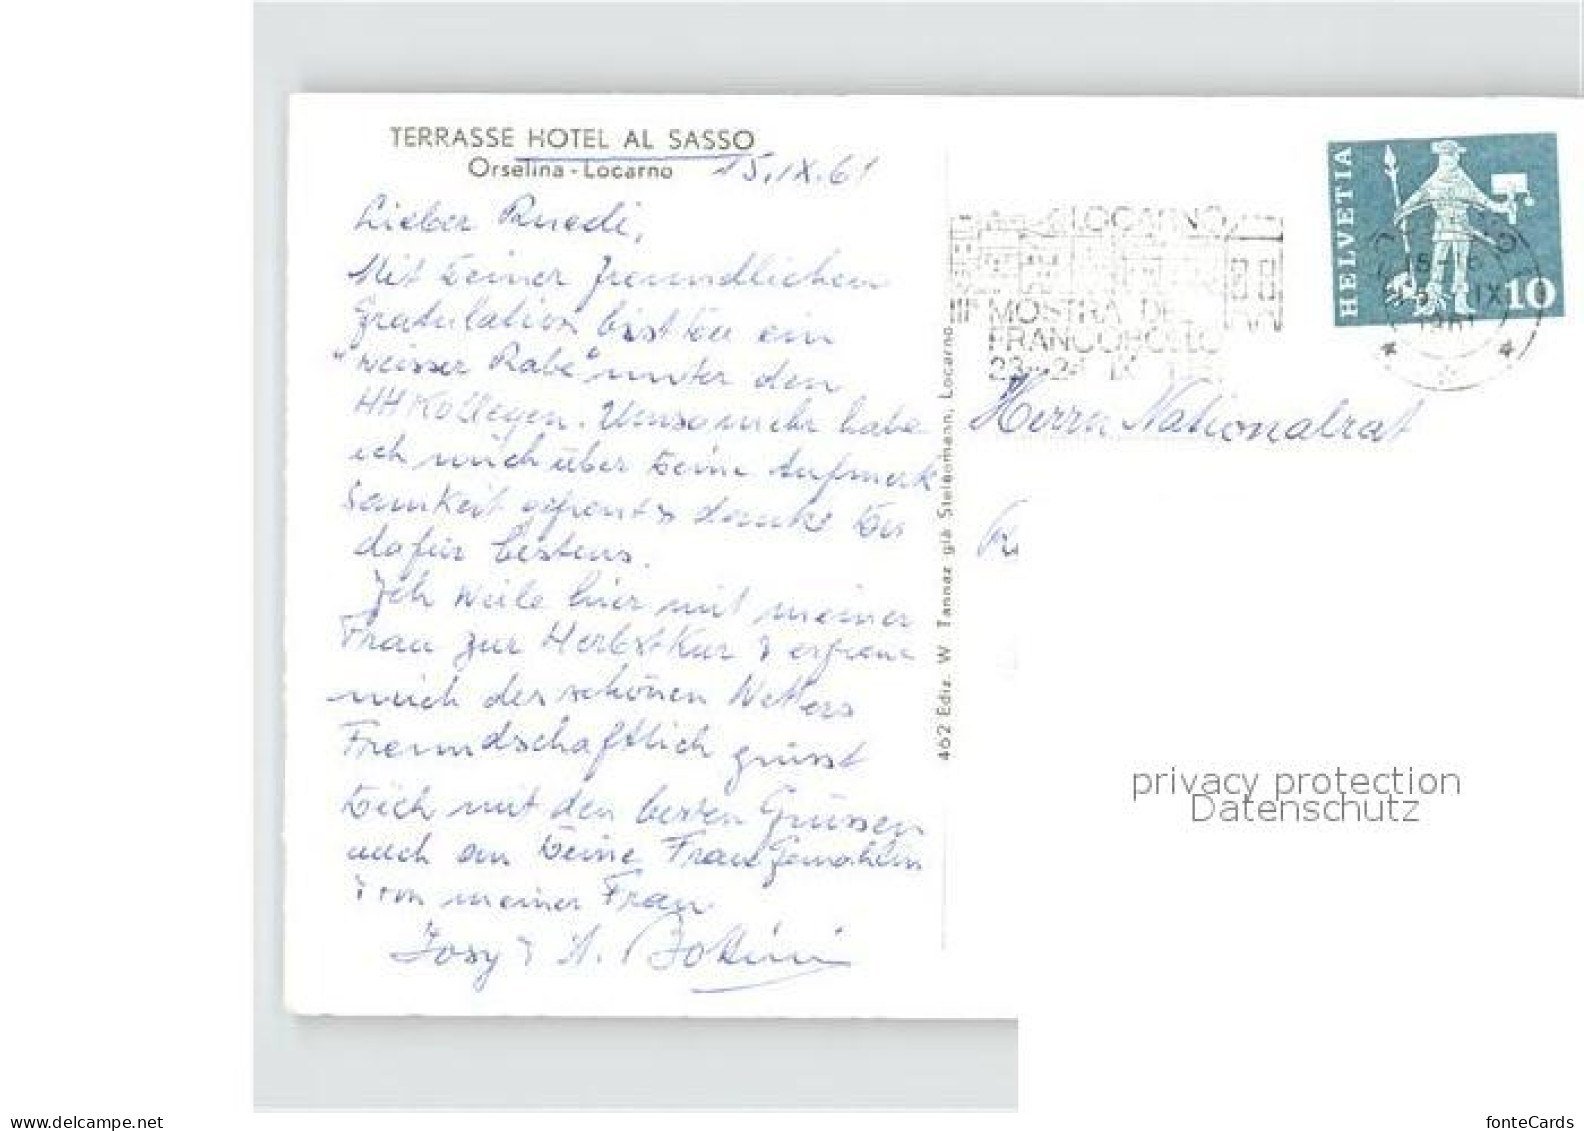 TERRASSE HOTEL AL SASSO
Orselina - Locarno
15.IX.61
Lieber Ruedi,
Mit Deiner freundlichen
Gratulation bist Du ein
"weisser Rabe" unter den
HH Kollegen. Umsomehr habe
ich mich über Deine Aufmerk
samkeit gefreut & danke Dir
dafür bestens.
Ich weile hier mit meiner
Frau zur Herbst-Kur & erfreue
mich des schönen Wetters
Freundschaftlich grüsst
Dich mit den besten Grüssen
auch an Deine Frau Gemahlin
& von meiner Frau
Josy & A.
462 Ediz. W. Tannaz già Steinemann, Locarno
LOCARNO
III MOSTRA DEL
FRANCOBOLLO
23-24 IX 1961
HELVETIA
10
15
IX
1961
Herrn Nationalrat
privacy protection
Datenschutz
www.delcampe.net
fonteCards